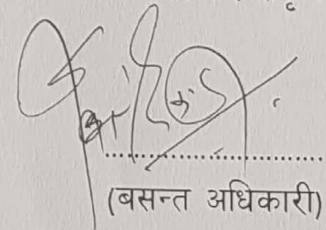 (बसन्त अधिकारी)